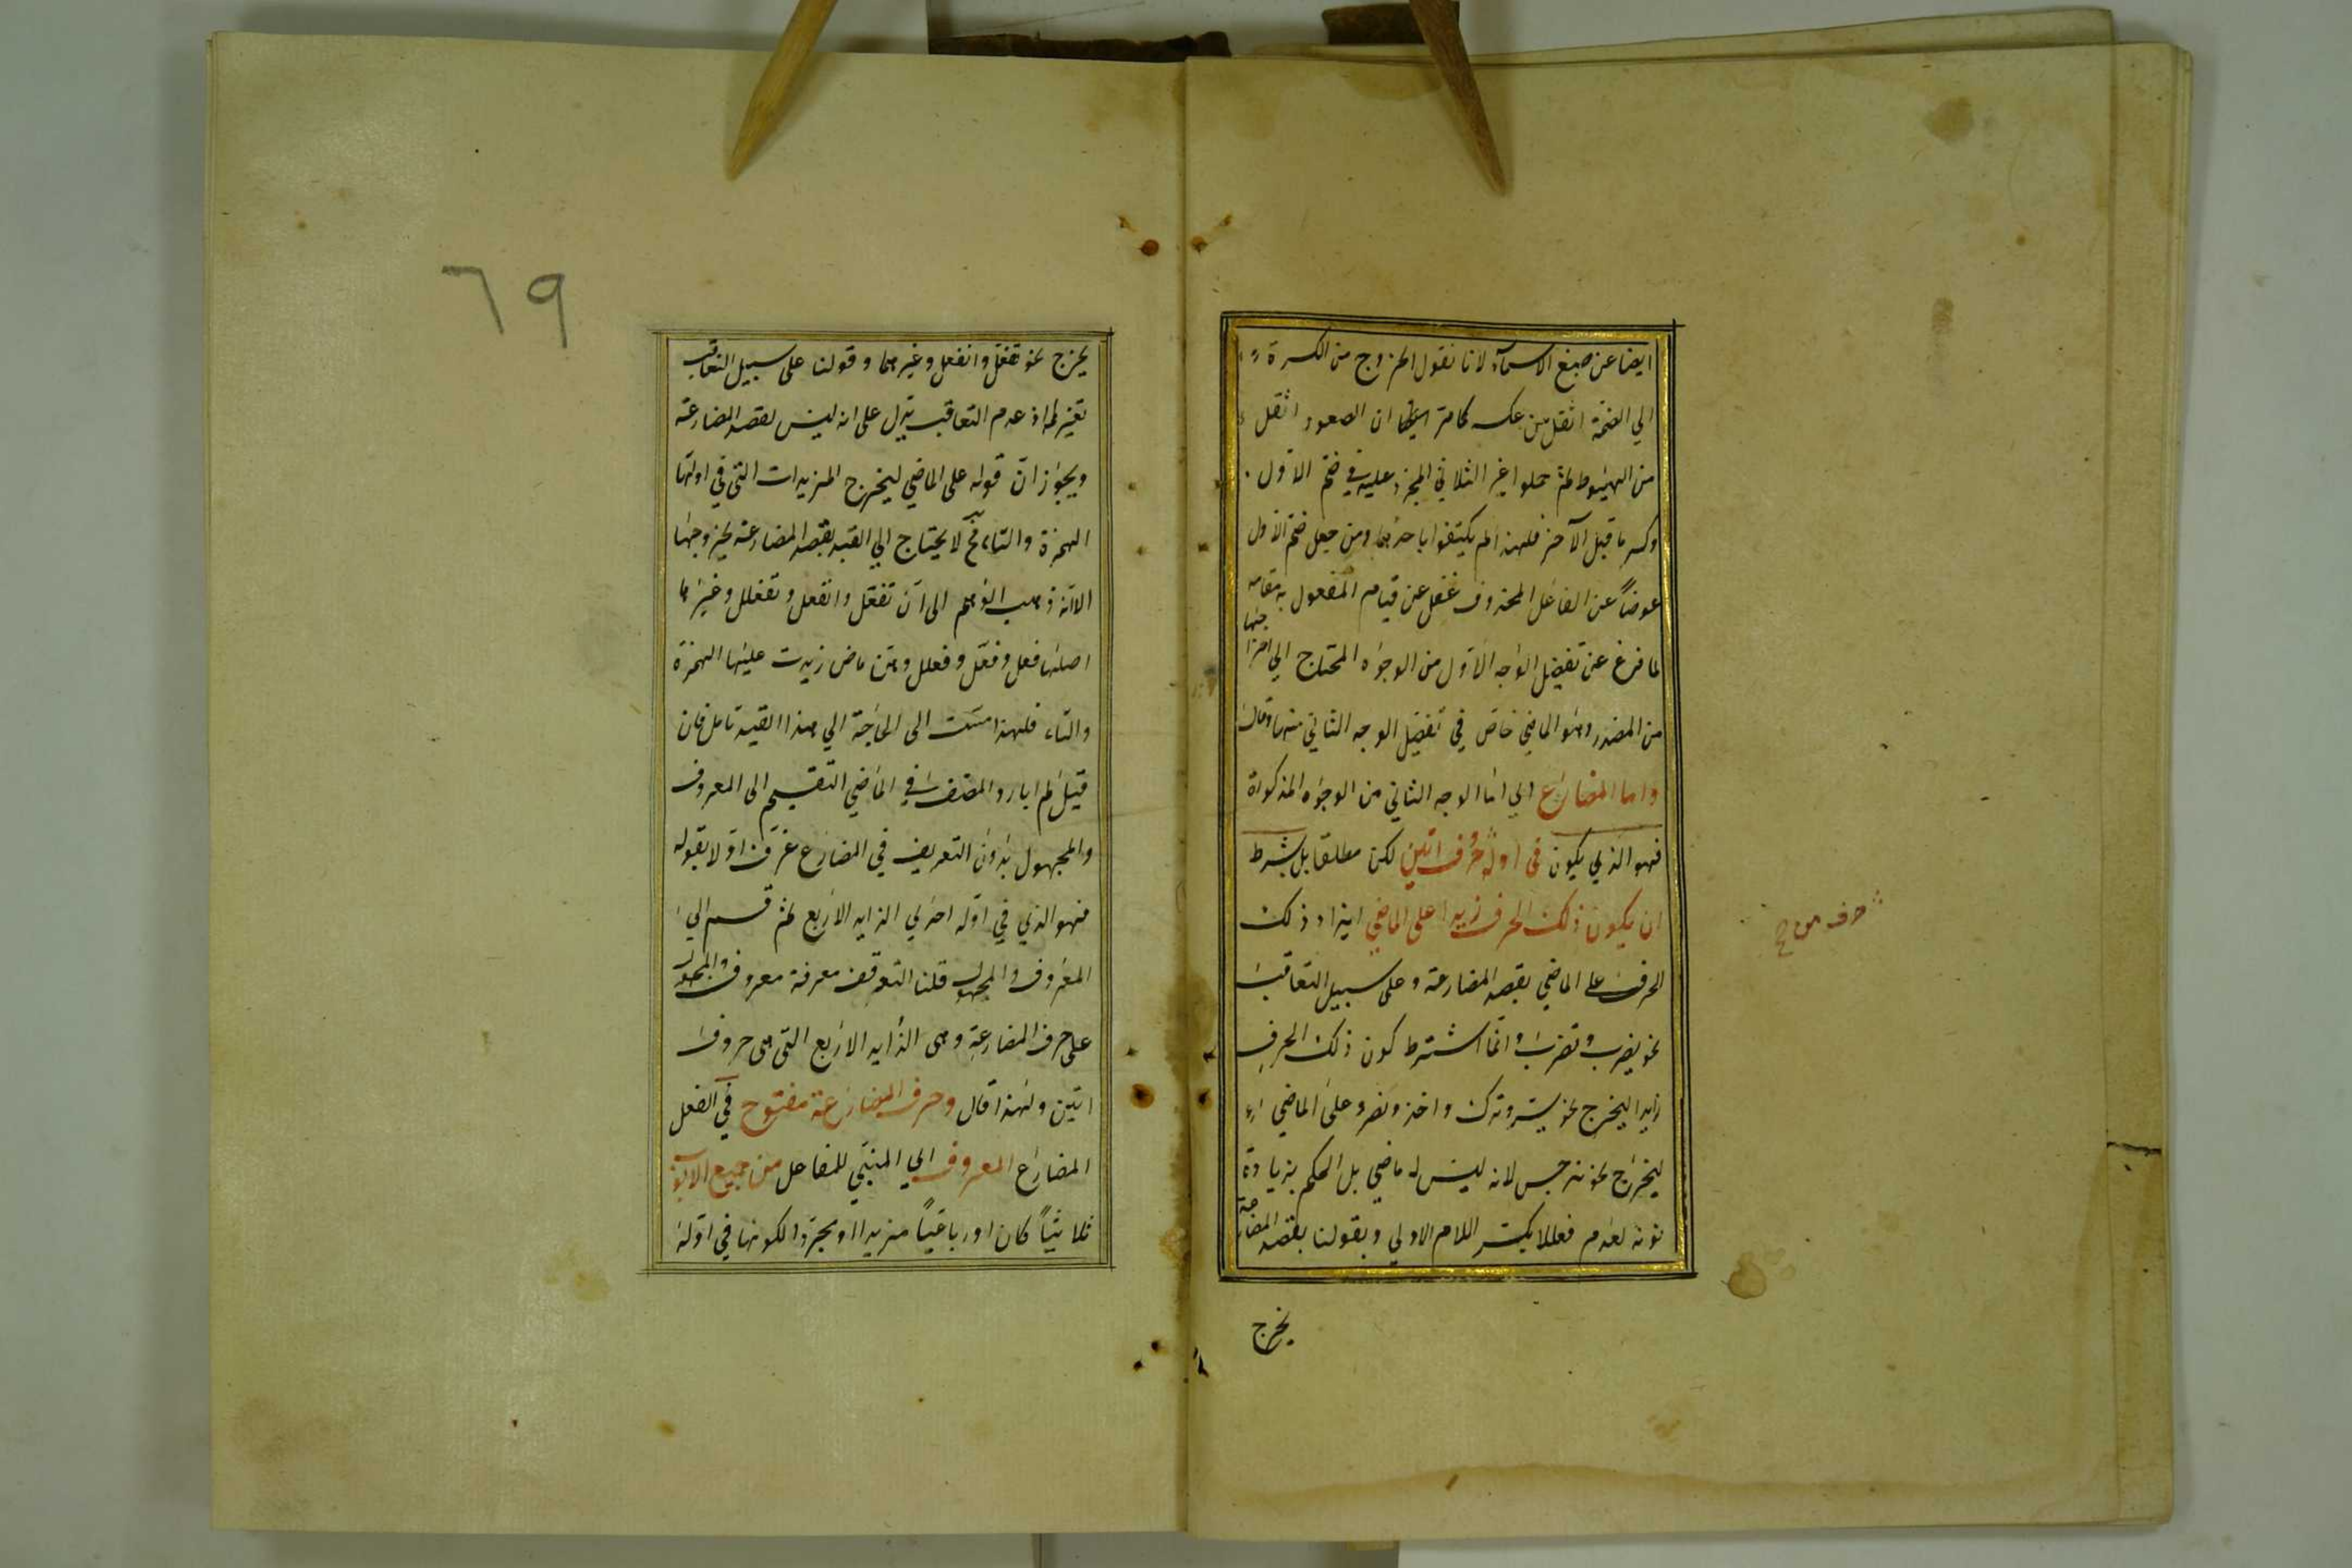 ايضا عن صيغ الاسماء لانا نقول الخروج من الكسرة
الي الضمة اثقل من عكسه كما مر ان الصعود اثقل
من الهبوط ثم حملوا غير الثلاثي المجرد عليه في ضم الاول
وكسر ما قبل الآخر فلهذا لم يكتفوا باحدهما ومن جعل ضم الاول
عوضاً عن الفاعل المحذوف غفل عن قيام المفعول به مقامه
لما فرغ عن تفصيل الوجه الاول من الوجوه المحتاج الي اخراجها
من المصدر وهو الماضي خاض في تفصيل الوجه الثاني منها وقال
واما المضارع اي اما الوجه الثاني من الوجوه المذكورة
فهو الذي يكون في اوله حروف اتين لكن مطلقا بل بشرط
ان يكون ذلك الحرف زيدا على الماضي اي زاد ذلك
الحرف على الماضي بقصد المضارعة وعلى سبيل التعاقب
نحو يضرب وتضرب وانما اشترط كون ذلك الحرف
زايدا ليخرج نحو يسر وترك واخذ ونصر وعلى الماضي
ليخرج نحو نرجس لانه ليس له ماضي بل الحكم بزيادة
نونه لعدم فعللا بكسر اللام الاولي وبقولنا بقصد المضارعة
يخرج
يخرج نحو تفعل وانفعل وغيرهما وقولنا على سبيل التعاقب
اذ عدم التعاقب يدل على انه ليس بقصد المضارعة
ويجوز ان قوله على الماضي ليخرج المزيدات التي في اولها
الهمزة والتاء فح لا يحتاج الي القيد بقصد المضارعة لخروجها
الا انه ذهب الوهم الى ان تفعل وانفعل وتفعلل وغيرها
اصلها فعل وفعل وفعلل وهن ماض زيدت عليها الهمزة
والتاء فلهذا مست الى الحاجة الي هذا القيد تامل فان
قيل لم المصنف في الماضي التقسيم الى المعروف
والمجهول بدون التعريف في المضارع عرف اولا بقوله
فهو الذي في اوله احدي الزايد الاربع ثم قسم الي
المعروف والمجهول قلنا لتوقف معرفة معروف والمجهول
على حرف المضارعة وهى الزايد الاربع التى هى حروف
اتين ولهذا قال وحرف المضارعة مفتوح في الفعل
المضارع المعروف اي المبني للفاعل من جميع الابواب
ثلاثياً كان او رباعياً مزيدا او مجردا لكونها في اوله
٦٩